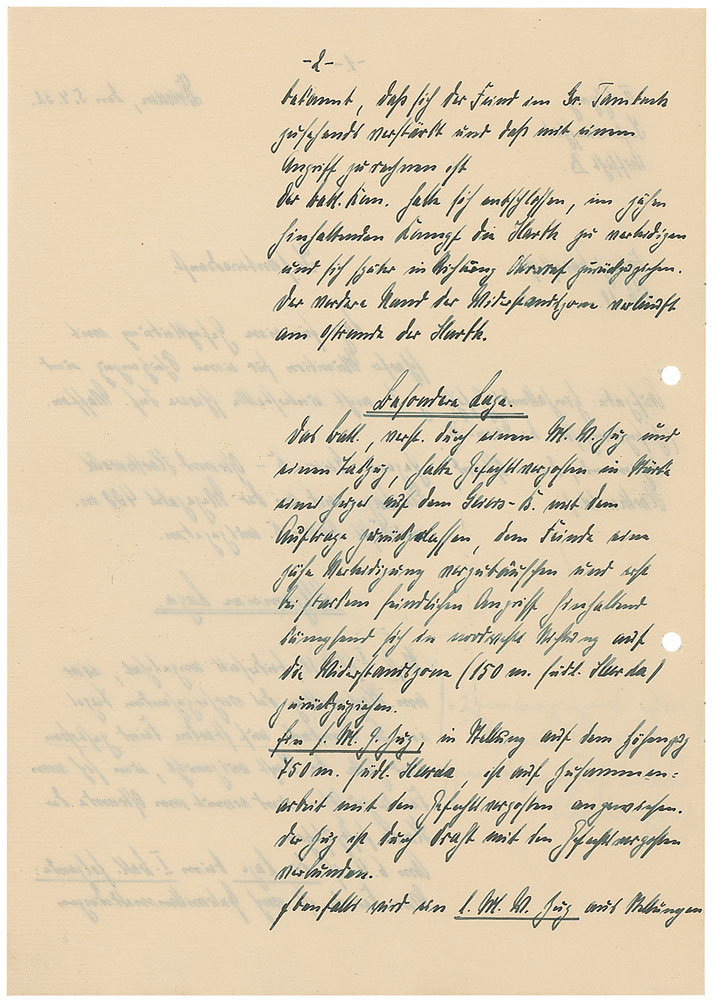 -2-
bekannt, daß sich der Feind im Gr. Tambach
zusehends verstärkt und daß mit einem
Angriff zu rechnen ist
Der Batl. Kom. hatte sich entschlossen, im zähen
hinhaltenden Kampf die Harth zu verteidigen
und sich später in Richtung zurückzuziehen.
Der vordere Rand der Widerstandszone verläuft
am Ostrande der Harth.
Besondere Lage.
Das Batl., verst. durch einen M. W. Zug und
einen Takzug, hatte Gefechtsvorposten in Stärke
einer auf dem B. mit dem
Auftrage zurückgelassen, dem Feinde eine
zähe Verteidigung vorzutäuschen und erst
bei starkem feindlichen Angriff hinhaltend
kämpfend sich in nordwestl. Richtung auf
die Widerstandszone (150 m. südl. Harda)
zurückzuziehen.
Ein s. M. G. Zug, in Stellung auf dem Höhenzug
750 m. südl. Harda, ist auf Zusammen=
arbeit mit den Gefechtsvorposten angewiesen.
Der Zug ist durch Draht mit den Gefechtsvorposten
verbunden.
Ebenfalls wird ein l. M. W. Zug aus Stellungen